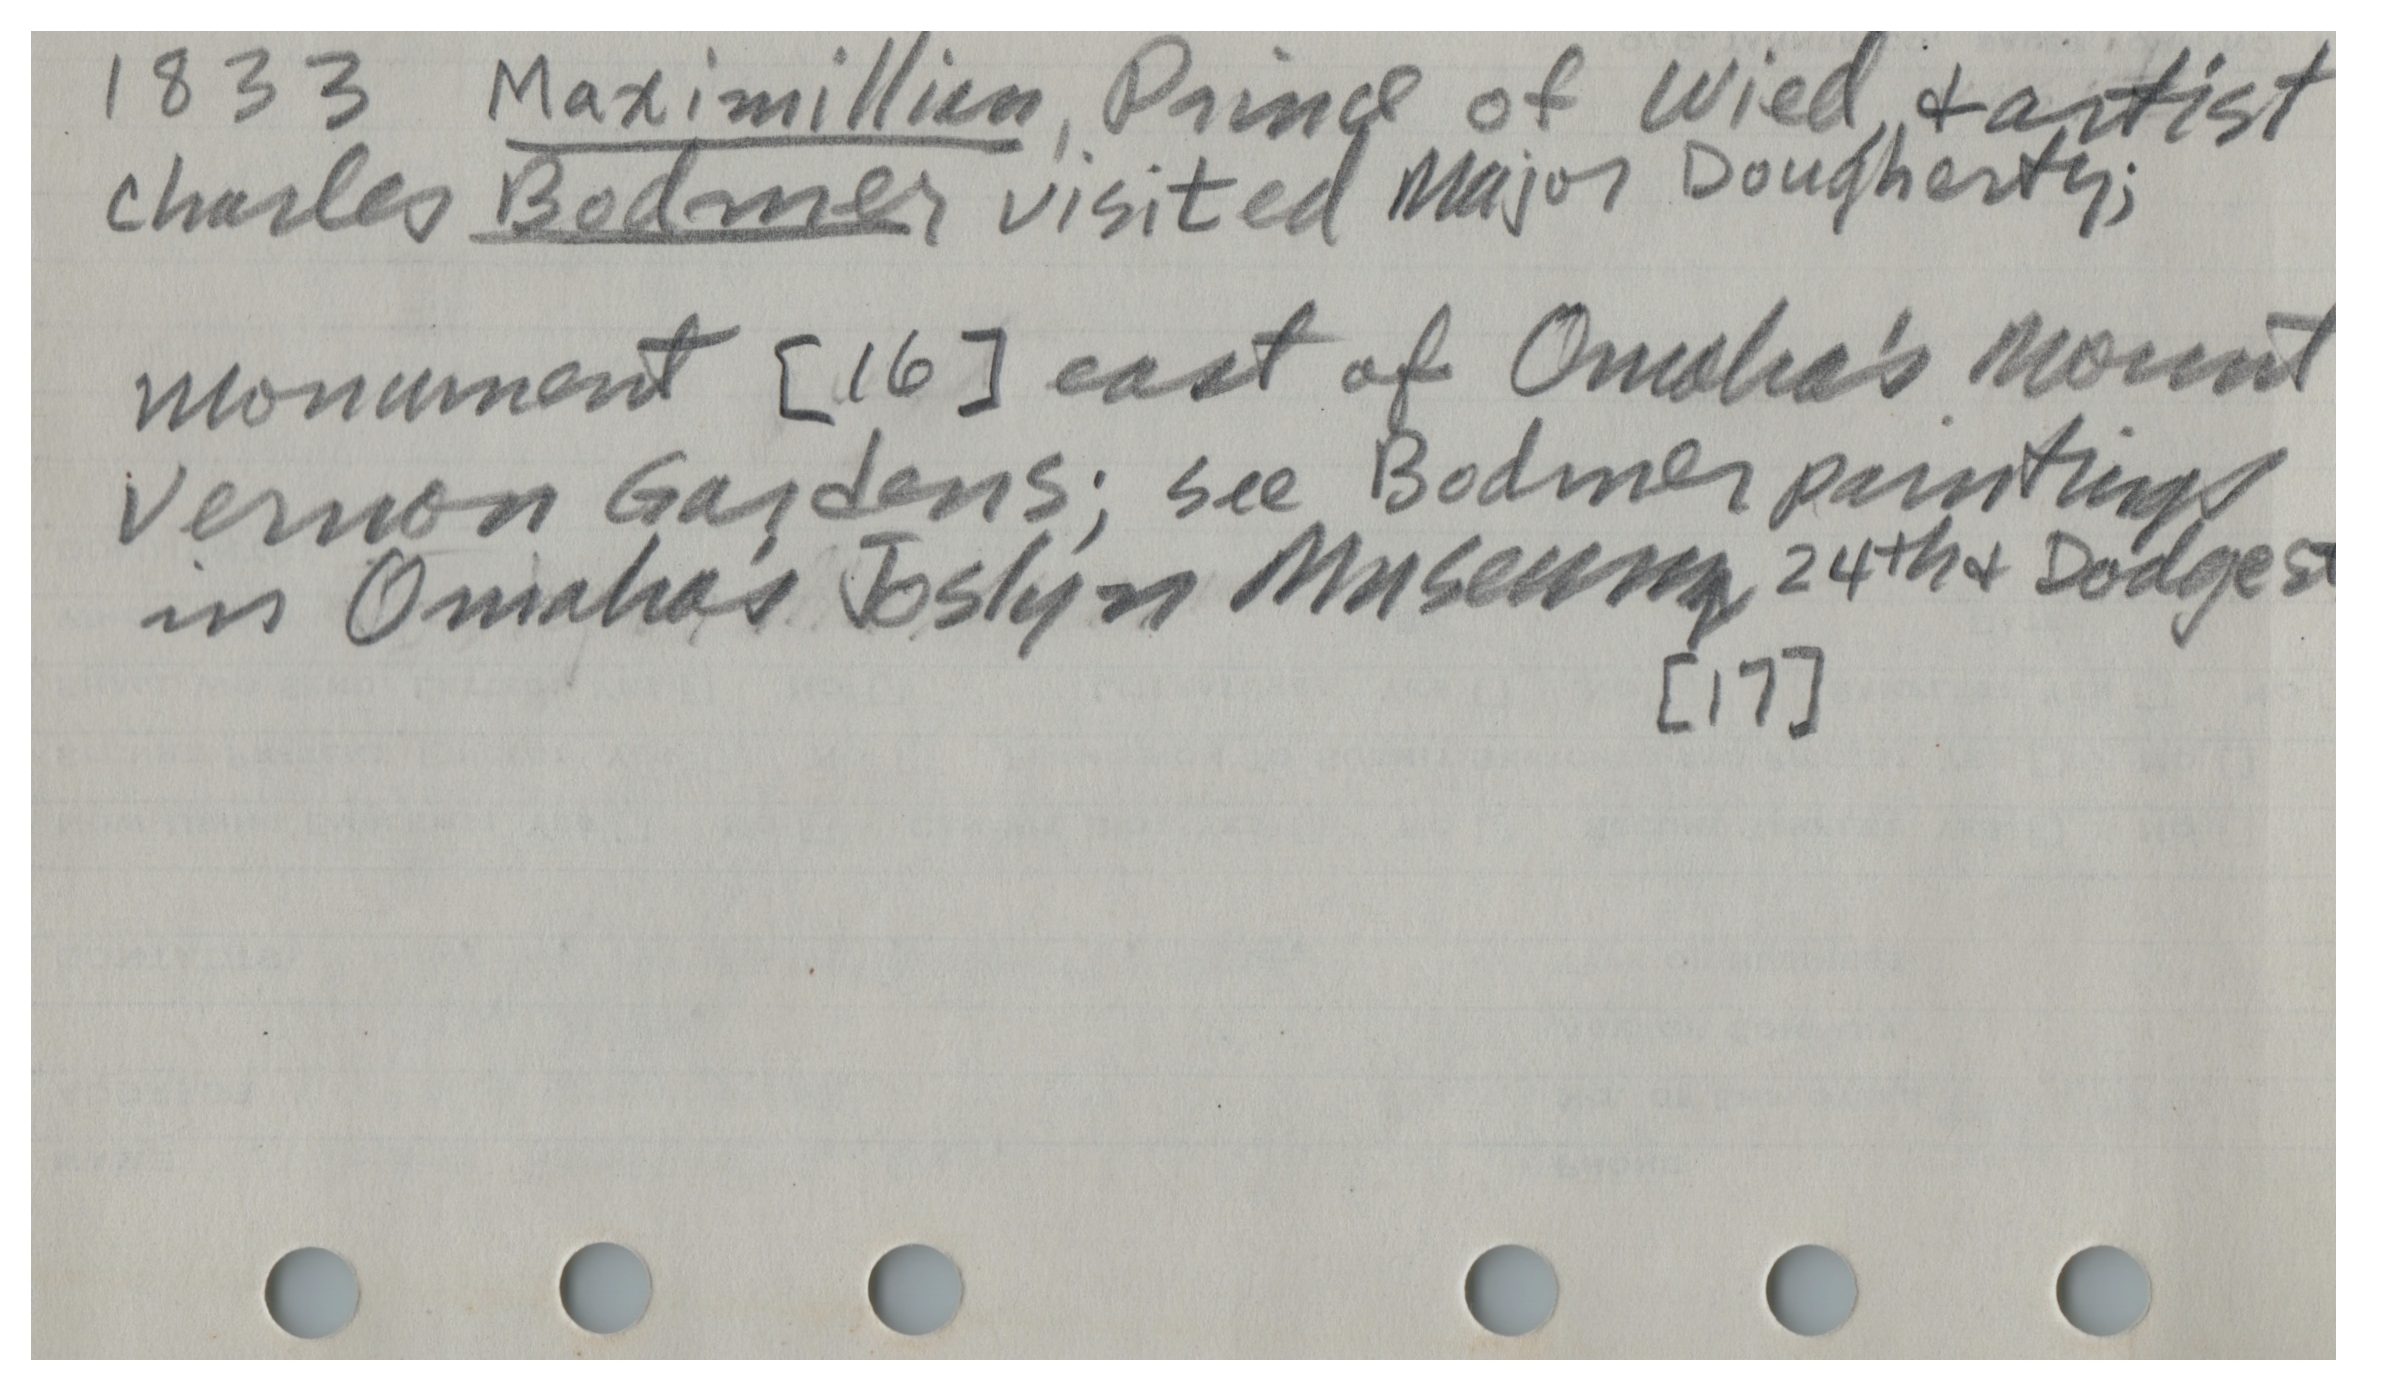 1833 Maximillian, Prince of Wied, & artist
Charles Bodmer visited Major Dougherty;
Monument [16] east of Omaha's Mount
Vernon Gardens; see Bodmer paintings
in Omaha's Joslyn Museum, 24th & Dodge st
[17]